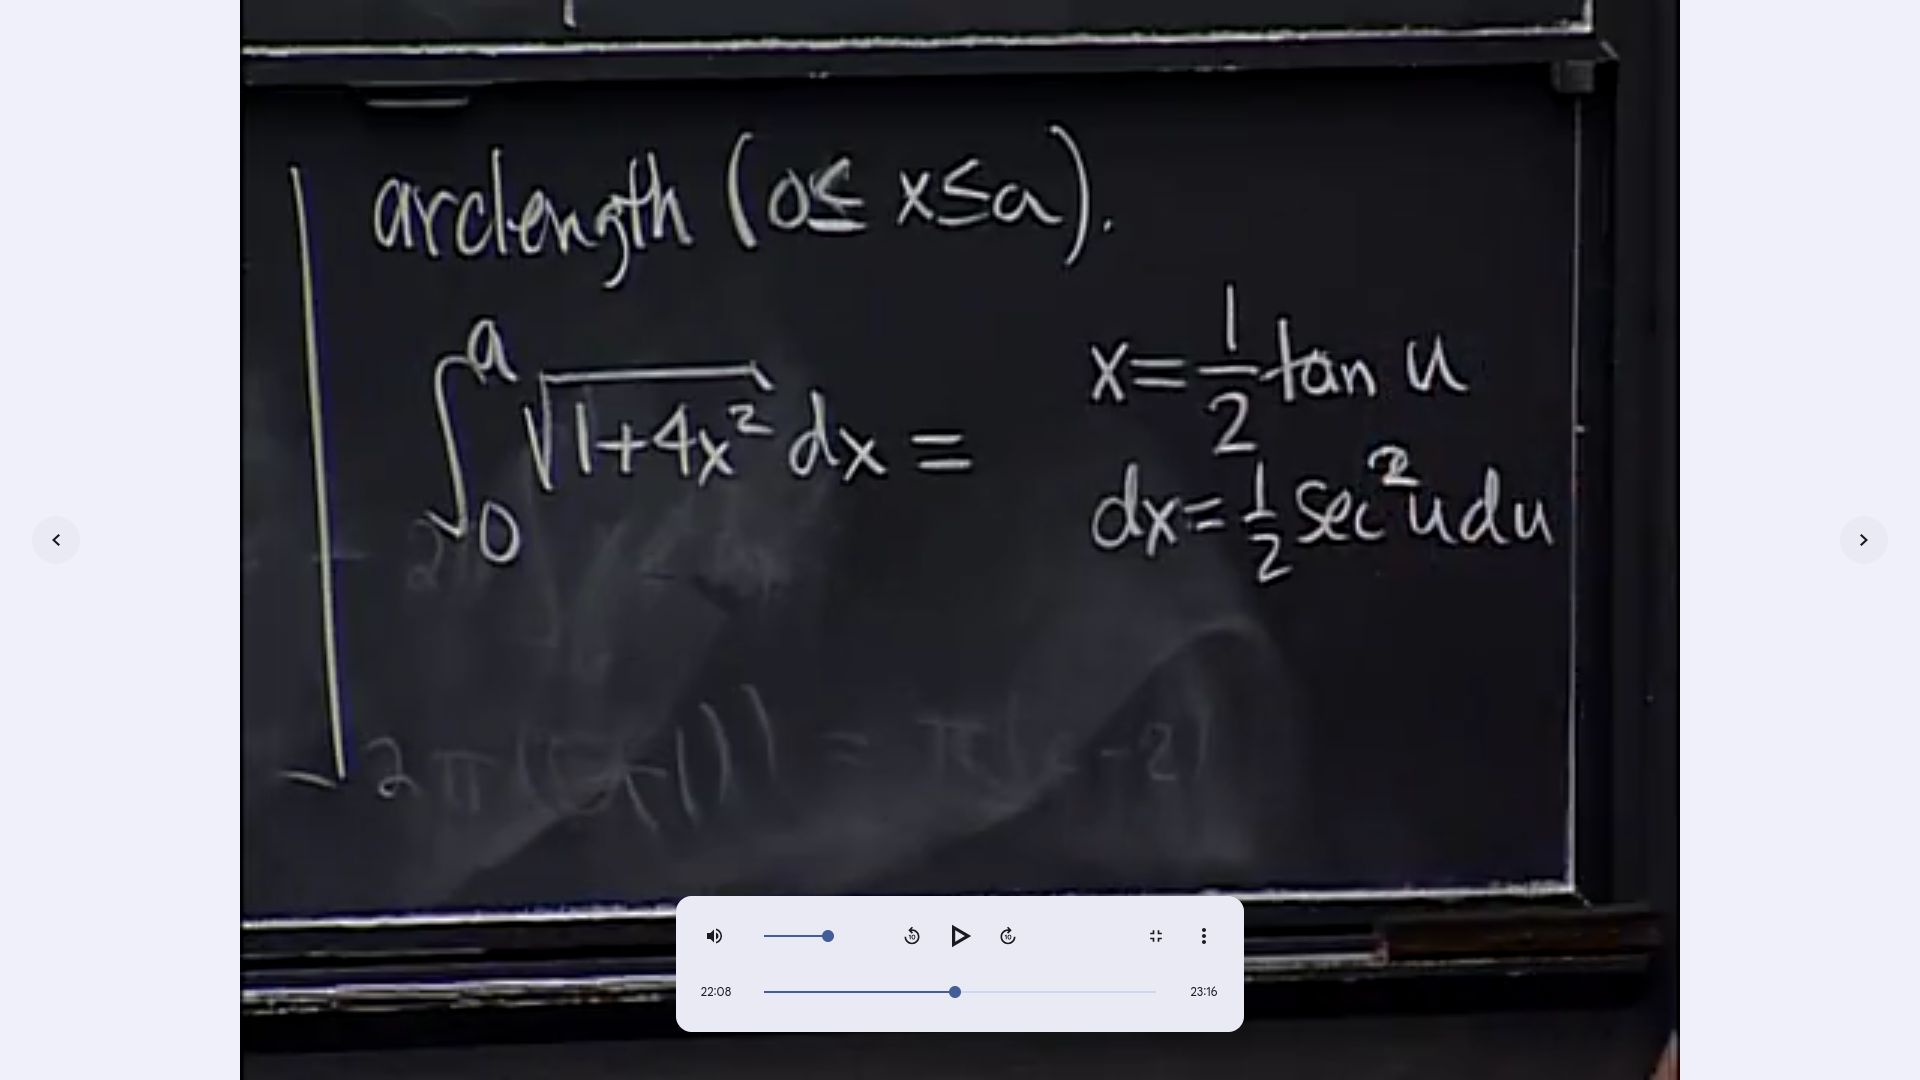 arclength (0≤ x≤a).
∫₀ᵃ √(1+4x²) dx =
x=1/2 tan u
dx=1/2 sec²u du
10
10
22:08
23:16